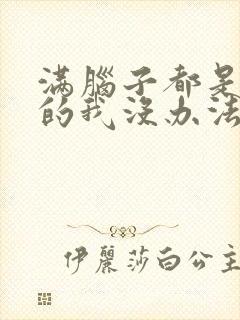 滿腦子都是
的我沒办法
伊麗莎白公主